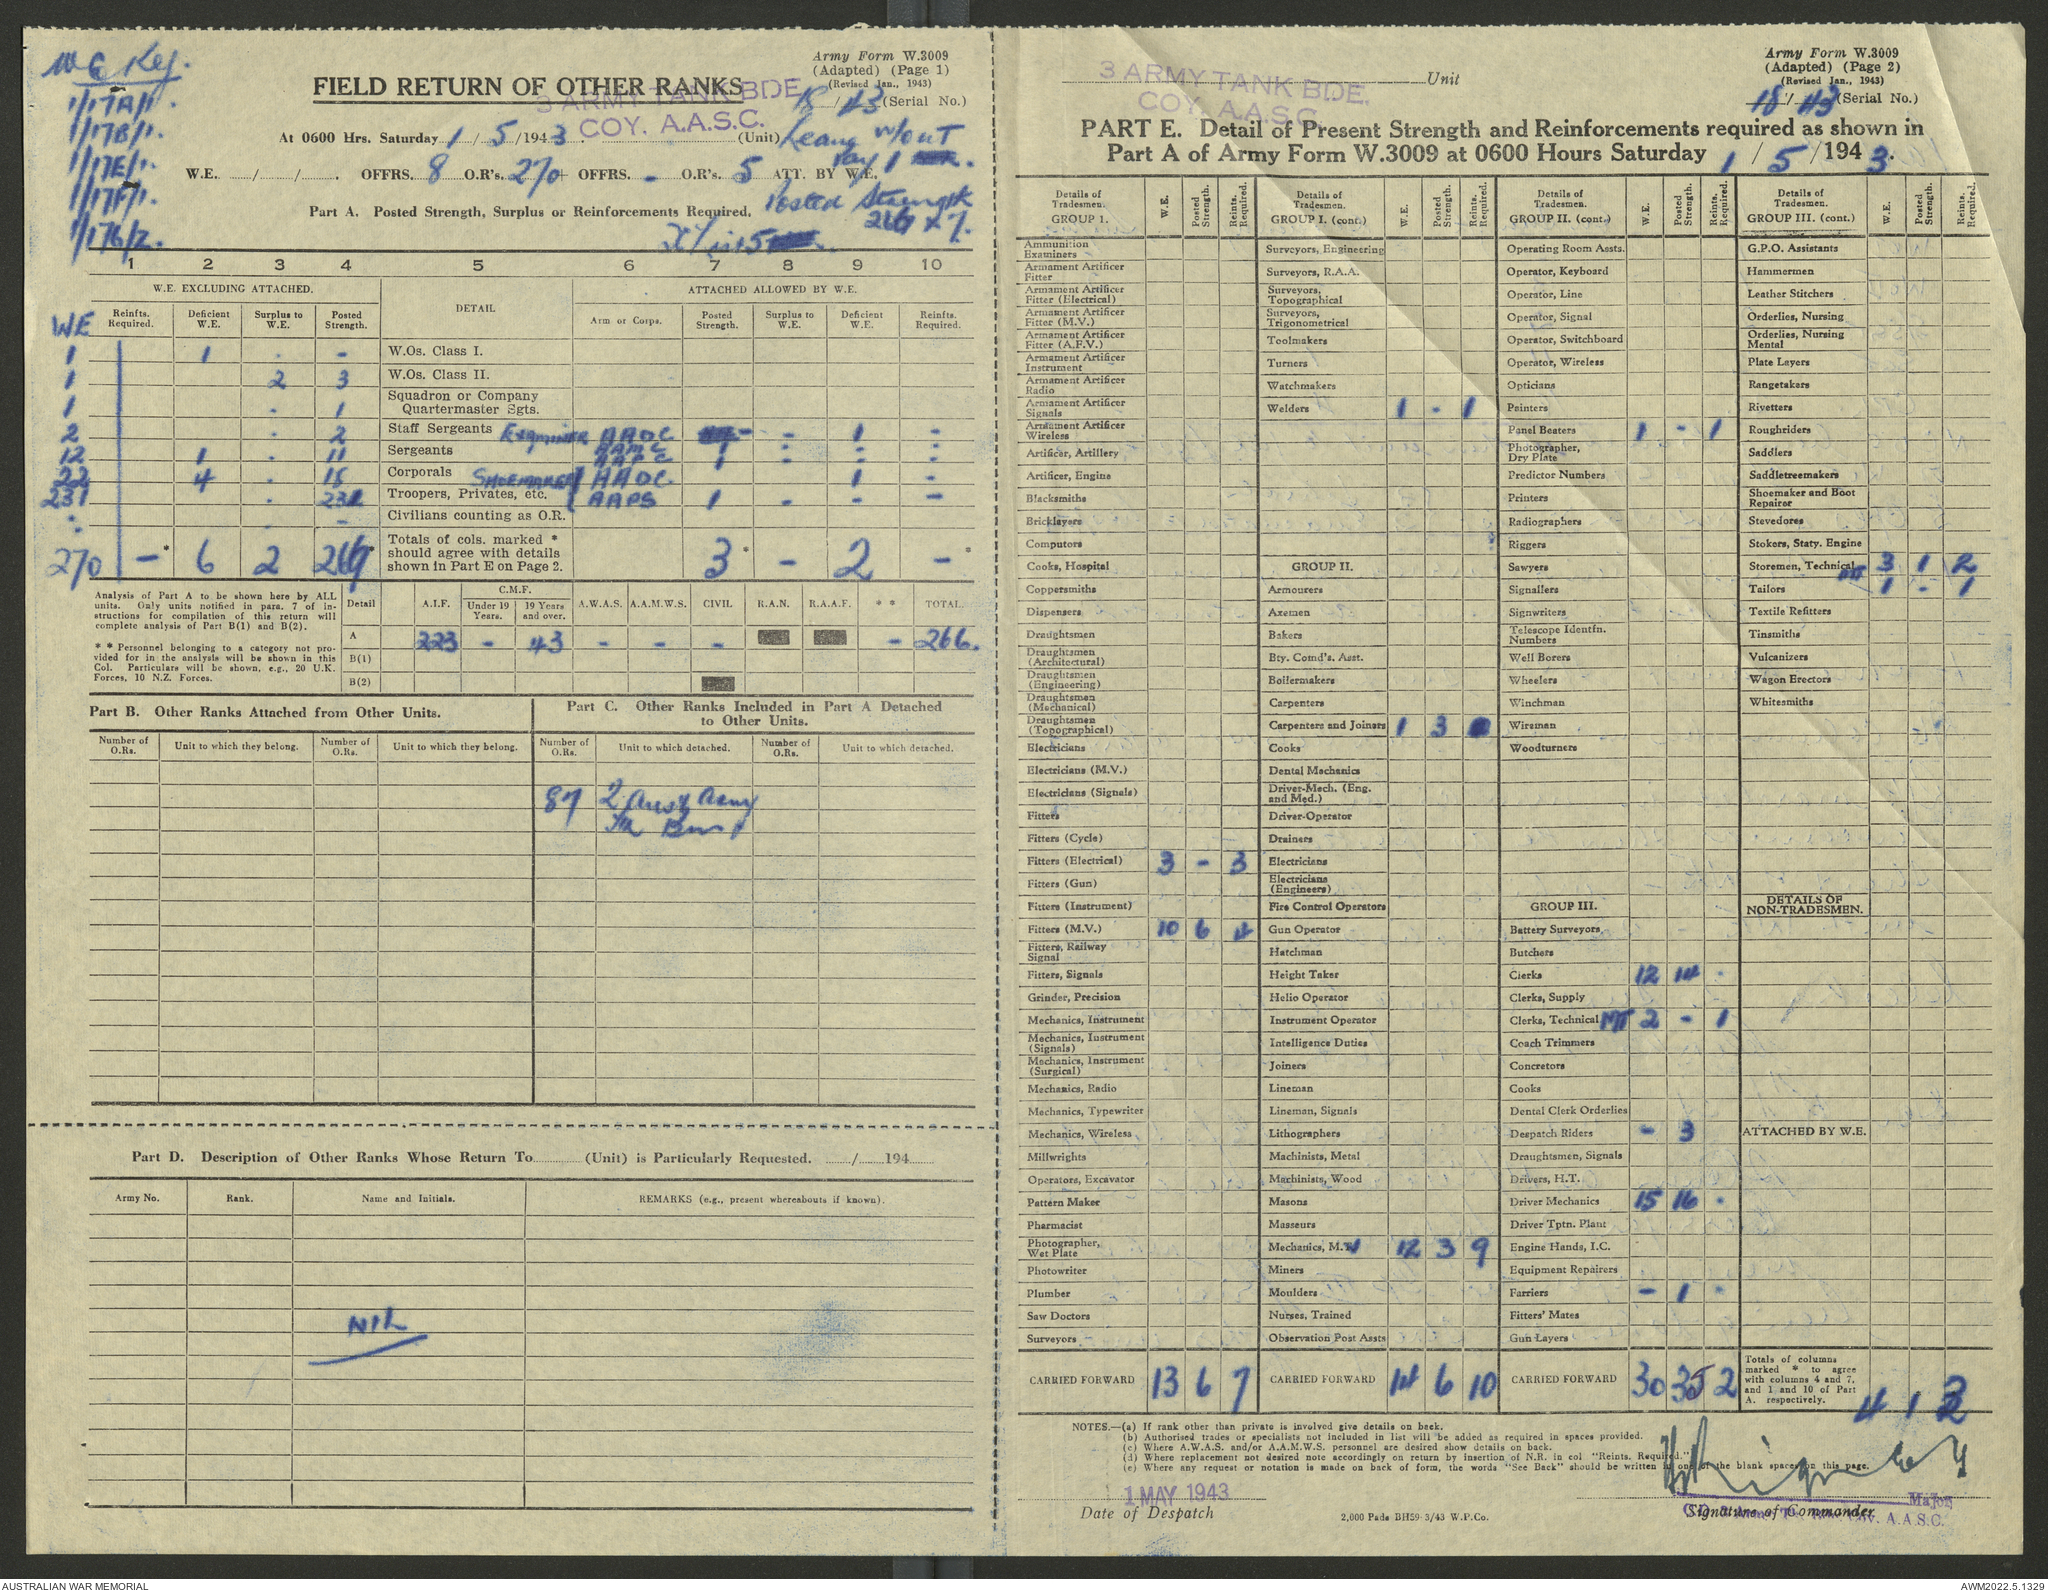 W E Ref.
1/17A/1.
1/17B/1.
1/17E/1.
1/17F/1.
1/17G/2.
Army Form W.3009
(Adapted) (Page 1)
(Revised Jan., 1943)
FIELD RETURN OF OTHER RANKS
18/43 (Serial No.)
3 ARMY TANK BDE.
COY. A.A.S.C.
At 0600 Hrs. Saturday 1/5/1943. (Unit)
Leave w/out
pay 1
W.E. / / . OFFRS. 8 O.R's. 270 + OFFRS. - O.R's. 5 ATT. BY W.E.
Posted Strength
Part A. Posted Strength, Surplus or Reinforcements Required.
X
1 2 3 4 5 6 7 8 9 10
W.E. EXCLUDING ATTACHED. DETAIL ATTACHED ALLOWED BY W.E.
WE Reinfts. Required. Deficient W.E. Surplus to W.E. Posted Strength. Arm or Corps. Posted Strength. Surplus to W.E. Deficient W.E. Reinfts. Required.
1 1 . - W.Os. Class I.
1 2 3 W.Os. Class II.
1 . 1 Squadron or Company Quartermaster Sgts.
2 . 2 Staff Sergeants Examiner AAOC - - 1 -
12 1 . 11 Sergeants AAMC 1 - - -
AAPC 1 - - -
22 4 . 18 Corporals Shoemaker AAOC 1 -
231 . 231 Troopers, Privates, etc. AAPS 1 - - -
. . - Civilians counting as O.R.
270 - * 6 2 266 * Totals of cols. marked * should agree with details shown in Part E on Page 2. 3 * - 2 - *
Analysis of Part A to be shown here by ALL units. Only units notified in para. 7 of instructions for compilation of this return will complete analysis of Part B(1) and B(2).
* * Personnel belonging to a category not provided for in the analysis will be shown in this Col. Particulars will be shown, e.g., 20 U.K. Forces, 10 N.Z. Forces.
Detail A.I.F. C.M.F. Under 19 Years. 19 Years and over. A.W.A.S. A.A.M.W.S. CIVIL R.A.N. R.A.A.F. * * TOTAL.
A 223 - 43 - - - - 266.
B(1)
B(2)
Part B. Other Ranks Attached from Other Units.
Part C. Other Ranks Included in Part A Detached to Other Units.
Number of O.Rs. Unit to which they belong. Number of O.Rs. Unit to which they belong. Number of O.Rs. Unit to which detached. Number of O.Rs. Unit to which detached.
87 2 Aust Army
Tk
Part D. Description of Other Ranks Whose Return To (Unit) is Particularly Requested. / 194
Army No. Rank. Name and Initials. REMARKS (e.g., present whereabouts if known).
NIL
Army Form W.3009
(Adapted) (Page 2)
(Revised Jan., 1943)
18/43 (Serial No.)
3 ARMY TANK BDE.
COY. A.A.S.C.
Unit
PART E. Detail of Present Strength and Reinforcements required as shown in
Part A of Army Form W.3009 at 0600 Hours Saturday 1/5/1943.
Details of Tradesmen. GROUP 1. W.E. Posted Strength. Reints. Required.
Ammunition Examiners
Armament Artificer Fitter
Armament Artificer Fitter (Electrical)
Armament Artificer Fitter (M.V.)
Armament Artificer Fitter (A.F.V.)
Armament Artificer Instrument
Armament Artificer Radio
Armament Artificer Signals
Armament Artificer Wireless
Artificer, Artillery
Artificer, Engine
Blacksmiths
Bricklayers
Computors
Cooks, Hospital
Coppersmiths
Dispensers
Draughtsmen
Draughtsmen (Architectural)
Draughtsmen (Engineering)
Draughtsmen (Mechanical)
Draughtsmen (Topographical)
Electricians
Electricians (M.V.)
Electricians (Signals)
Fitters
Fitters (Cycle)
Fitters (Electrical) 3 - 3
Fitters (Gun)
Fitters (Instrument)
Fitters (M.V.) 10 6 4
Fitters, Railway Signal
Fitters, Signals
Grinder, Precision
Mechanics, Instrument
Mechanics, Instrument (Signals)
Mechanics, Instrument (Surgical)
Mechanics, Radio
Mechanics, Typewriter
Mechanics, Wireless
Millwrights
Operators, Excavator
Pattern Maker
Pharmacist
Photographer, Wet Plate
Photowriter
Plumber
Saw Doctors
Surveyors
CARRIED FORWARD 13 6 7
Details of Tradesmen. GROUP I. (cont.) W.E. Posted Strength. Reints. Required.
Surveyors, Engineering
Surveyors, R.A.A.
Surveyors, Topographical
Surveyors, Trigonometrical
Toolmakers
Turners
Watchmakers
Welders 1 - 1
GROUP II.
Armourers
Axemen
Bakers
Bty. Comd's. Asst.
Boilermakers
Carpenters
Carpenters and Joiners 1 3
Cooks
Dental Mechanics
Driver-Mech. (Eng. and Med.)
Driver-Operator
Drainers
Electricians
Electricians (Engineers)
Fire Control Operators
Gun Operator
Hatchman
Height Taker
Helio Operator
Instrument Operator
Intelligence Duties
Joiners
Lineman
Lineman, Signals
Lithographers
Machinists, Metal
Machinists, Wood
Masons
Masseurs
Mechanics, M.V 12 3 9
Miners
Moulders
Nurses, Trained
Observation Post Assts
CARRIED FORWARD 14 6 10
Details of Tradesmen. GROUP II. (cont.) W.E. Posted Strength. Reints. Required.
Operating Room Assts.
Operator, Keyboard
Operator, Line
Operator, Signal
Operator, Switchboard
Operator, Wireless
Opticians
Painters
Panel Beaters 1 - 1
Photographer, Dry Plate
Predictor Numbers
Printers
Radiographers
Riggers
Sawyers
Signallers
Signwriters
Telescope Identfn. Numbers
Well Borers
Wheelers
Winchman
Wireman
Woodturners
GROUP III.
Battery Surveyors
Butchers
Clerks 12 14 .
Clerks, Supply
Clerks, Technical MT 2 - 1
Coach Trimmers
Concretors
Cooks
Dental Clerk Orderlies
Despatch Riders - 3
Draughtsmen, Signals
Drivers, H.T.
Driver Mechanics 15 16 .
Driver Tptn. Plant
Engine Hands, I.C.
Equipment Repairers
Farriers - 1 .
Fitters' Mates
Gun Layers
CARRIED FORWARD 30 35 2
Details of Tradesmen. GROUP III. (cont.) W.E. Posted Strength. Reints. Required.
G.P.O. Assistants
Hammermen
Leather Stitchers
Orderlies, Nursing
Orderlies, Nursing Mental
Plate Layers
Rangetakers
Rivetters
Roughriders
Saddlers
Saddletreemakers
Shoemaker and Boot Repairer
Stevedores
Stokers, Staty. Engine
Storemen, Technical MT 3 1 2
Tailors 1 - 1
Textile Refitters
Tinsmiths
Vulcanizers
Wagon Erectors
Whitesmiths
DETAILS OF NON-TRADESMEN.
ATTACHED BY W.E.
Totals of columns marked * to agree with columns 4 and 7, and 1 and 10 of Part A. respectively. 4 1
NOTES.—(a) If rank other than private is involved give details on back.
(b) Authorised trades or specialists not included in list will be added as required in spaces provided.
(c) Where A.W.A.S. and/or A.A.M.W.S. personnel are desired show details on back.
(d) Where replacement not desired note accordingly on return by insertion of N.R. in col "Reints. Required."
(e) Where any request or notation is made on back of form, the words "See Back" should be written in one of the blank spaces on this page.
1 MAY 1943
Major,
Date of Despatch
2,000 Pads BH59-3/43 W.P.Co.
Signature of Commander
Coy. A.A.S.C.
AUSTRALIAN WAR MEMORIAL
AWM2022.5.1329